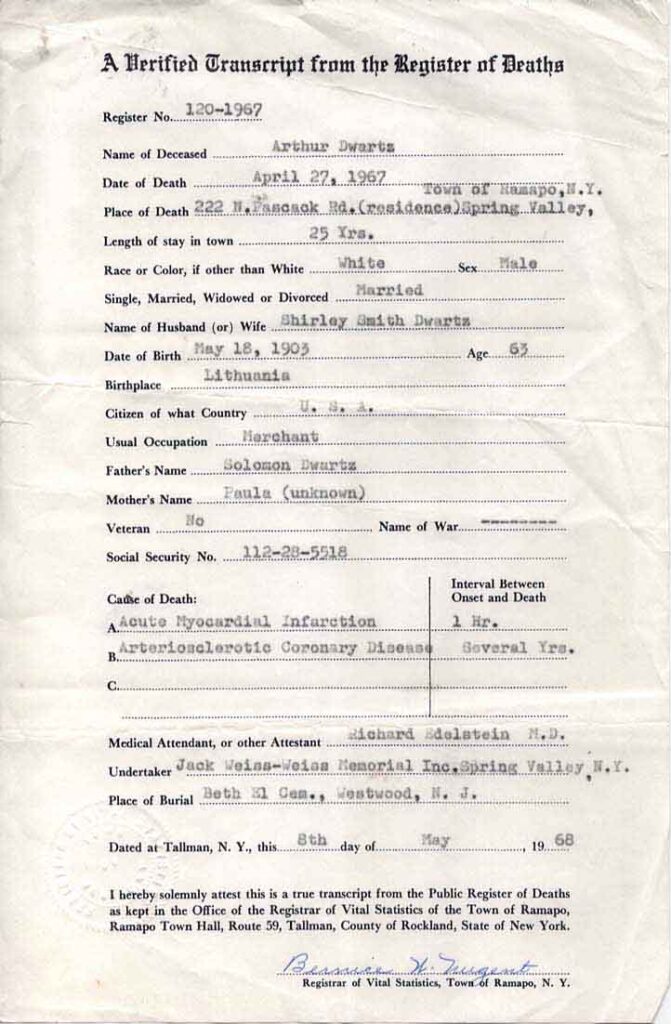 A Verified Transcript from the Register of Deaths
Register No. 120-1967
Name of Deceased Arthur Dwartz
Date of Death April 27, 1967
Town of Ramapo, N.Y.
Place of Death 222 N. Pascack Rd. (residence) Spring Valley,
Length of stay in town 25 Yrs.
Race or Color, if other than White White Sex Male
Single, Married, Widowed or Divorced Married
Name of Husband (or) Wife Shirley Smith Dwartz
Date of Birth May 18, 1903 Age 63
Birthplace Lithuania
Citizen of what Country U. S. A.
Usual Occupation Merchant
Father's Name Solomon Dwartz
Mother's Name Paula (unknown)
Veteran No Name of War --------
Social Security No. 112-28-5518
Interval Between
Cause of Death: Onset and Death
A. Acute Myocardial Infarction 1 Hr.
B. Arteriosclerotic Coronary Disease Several Yrs.
C.
Medical Attendant, or other Attestant Richard Edelstein M.D.
Undertaker Jack Weiss-Weiss Memorial Inc. Spring Valley, N.Y.
Place of Burial Beth El Cem., Westwood, N. J.
Dated at Tallman, N. Y., this 8th day of May, 19 68
I hereby solemnly attest this is a true transcript from the Public Register of Deaths
as kept in the Office of the Registrar of Vital Statistics of the Town of Ramapo,
Ramapo Town Hall, Route 59, Tallman, County of Rockland, State of New York.
Bernice W. Nugent
Registrar of Vital Statistics, Town of Ramapo, N. Y.